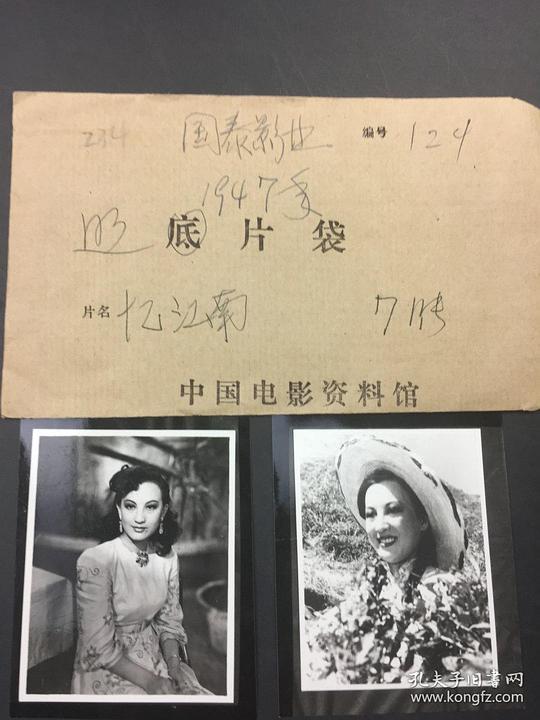 234 国泰影业 编号 124
1947年
照 底片袋
片名 忆江南 7张
中国电影资料馆
孔夫子旧书网
www.kongfz.com